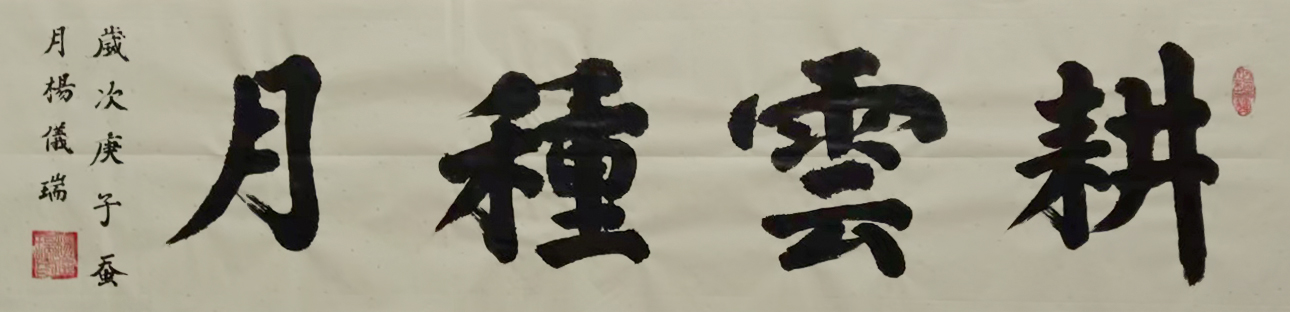 耕雲種月
歲次庚子蚕
月楊儀瑞